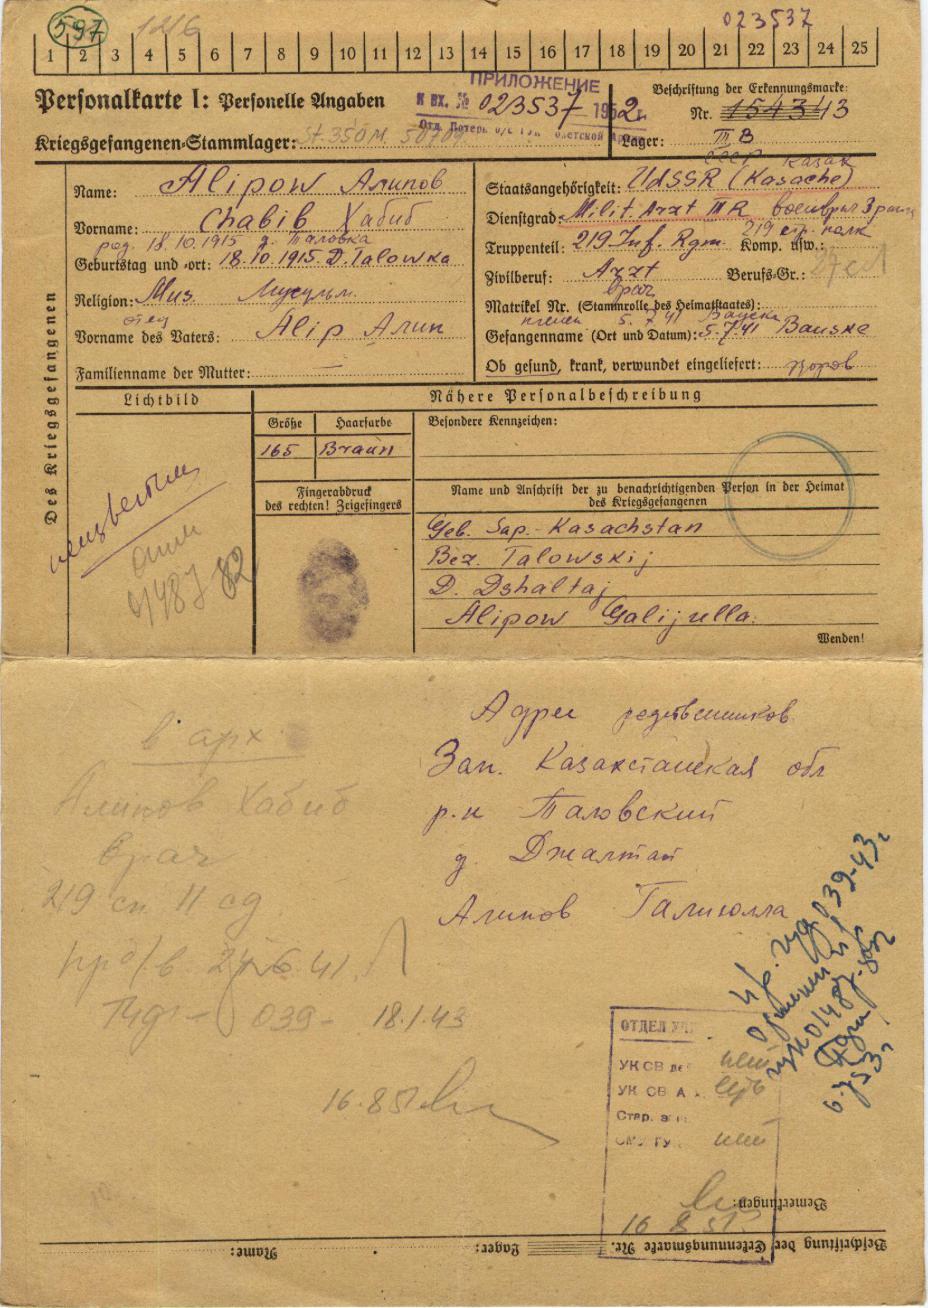 597 1216 023537
1 2 3 4 5 6 7 8 9 10 11 12 13 14 15 16 17 18 19 20 21 22 23 24 25
Personalkarte I: Personelle Angaben
ПРИЛОЖЕНИЕ
К вх. № 023537 1952 г.
Beschriftung der Erkennungsmarke:
Nr. 15434 13
Kriegsgefangenen-Stammlager: St. 350
Lager: III B
СССР казах
Des Kriegsgefangenen
Name: Alipow Алипов
Staatsangehörigkeit: UdSSR (Kasache)
Vorname: Chabib Хабиб
Dienstgrad: Milit. Arzt III R военврач 3 ранга
род. 18.10.1915 д. Таловка
219 стр. полк
Geburtstag und -ort: 18.10.1915. D. Talowka
Truppenteil: 219 Inf. Rgm. Komp. usw.:
Zivilberuf: Arzt Berufs-Gr.:
врач
Religion: Mus. Мусульм.
Matrikel Nr. (Stammrolle des Heimatstaates):
отец
пленен 5.7.41 Бауска
Vorname des Vaters: Alip Алип
Gefangenname (Ort und Datum): 5.7.41 Bauske
Familienname der Mutter: —
Ob gesund, krank, verwundet eingeliefert: здоров
Lichtbild
Nähere Personalbeschreibung
Größe Haarfarbe Besondere Kennzeichen:
165 Braun
Fingerabdruck
des rechten! Zeigefingers
Name und Anschrift der zu benachrichtigenden Person in der Heimat
des Kriegsgefangenen
Geb. Sap.-Kasachstan
Bez. Talowskij
D. Dshaltaj
Alipow Galijulla.
Wenden!
Адрес родственников
Зап. Казахстанская обл
р-н Таловский
д. Джалтай
Алипов Галиюлла
в арх
Алипов Хабиб
врач
219 сп 11 сд
18.1.43
16.8.51
ОТДЕЛ
УК СВ нет
УК СВ А
нет
16 8 51.
Bemerkungen:
Beschriftung der Erkennungsmarke Nr. Lager: Name: